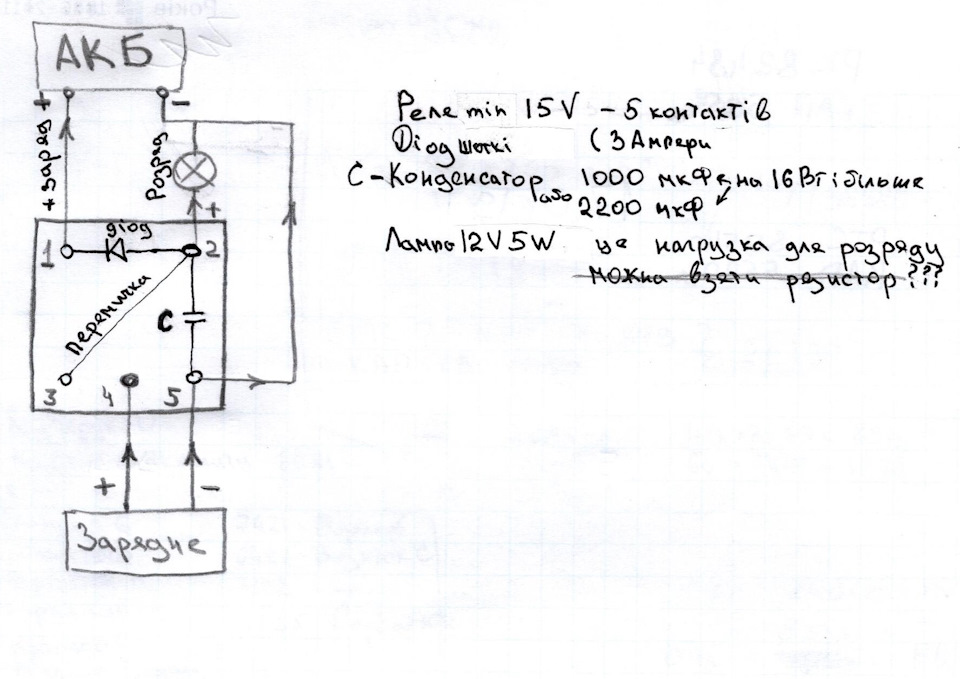 АКБ
+ -
+ заряд
Розряд
+
1 діод 2
Перемичка
C
3 4 5
+ -
Зарядне
Реле min 15V - 5 контактів
Діод Шоткі (3 Ампери
C - Конденсатор 1000 мкФ на 16Вт і більше
або 2200 мкФ
Лампа 12V 5W це нагрузка для розряду
можна взяти резистор???